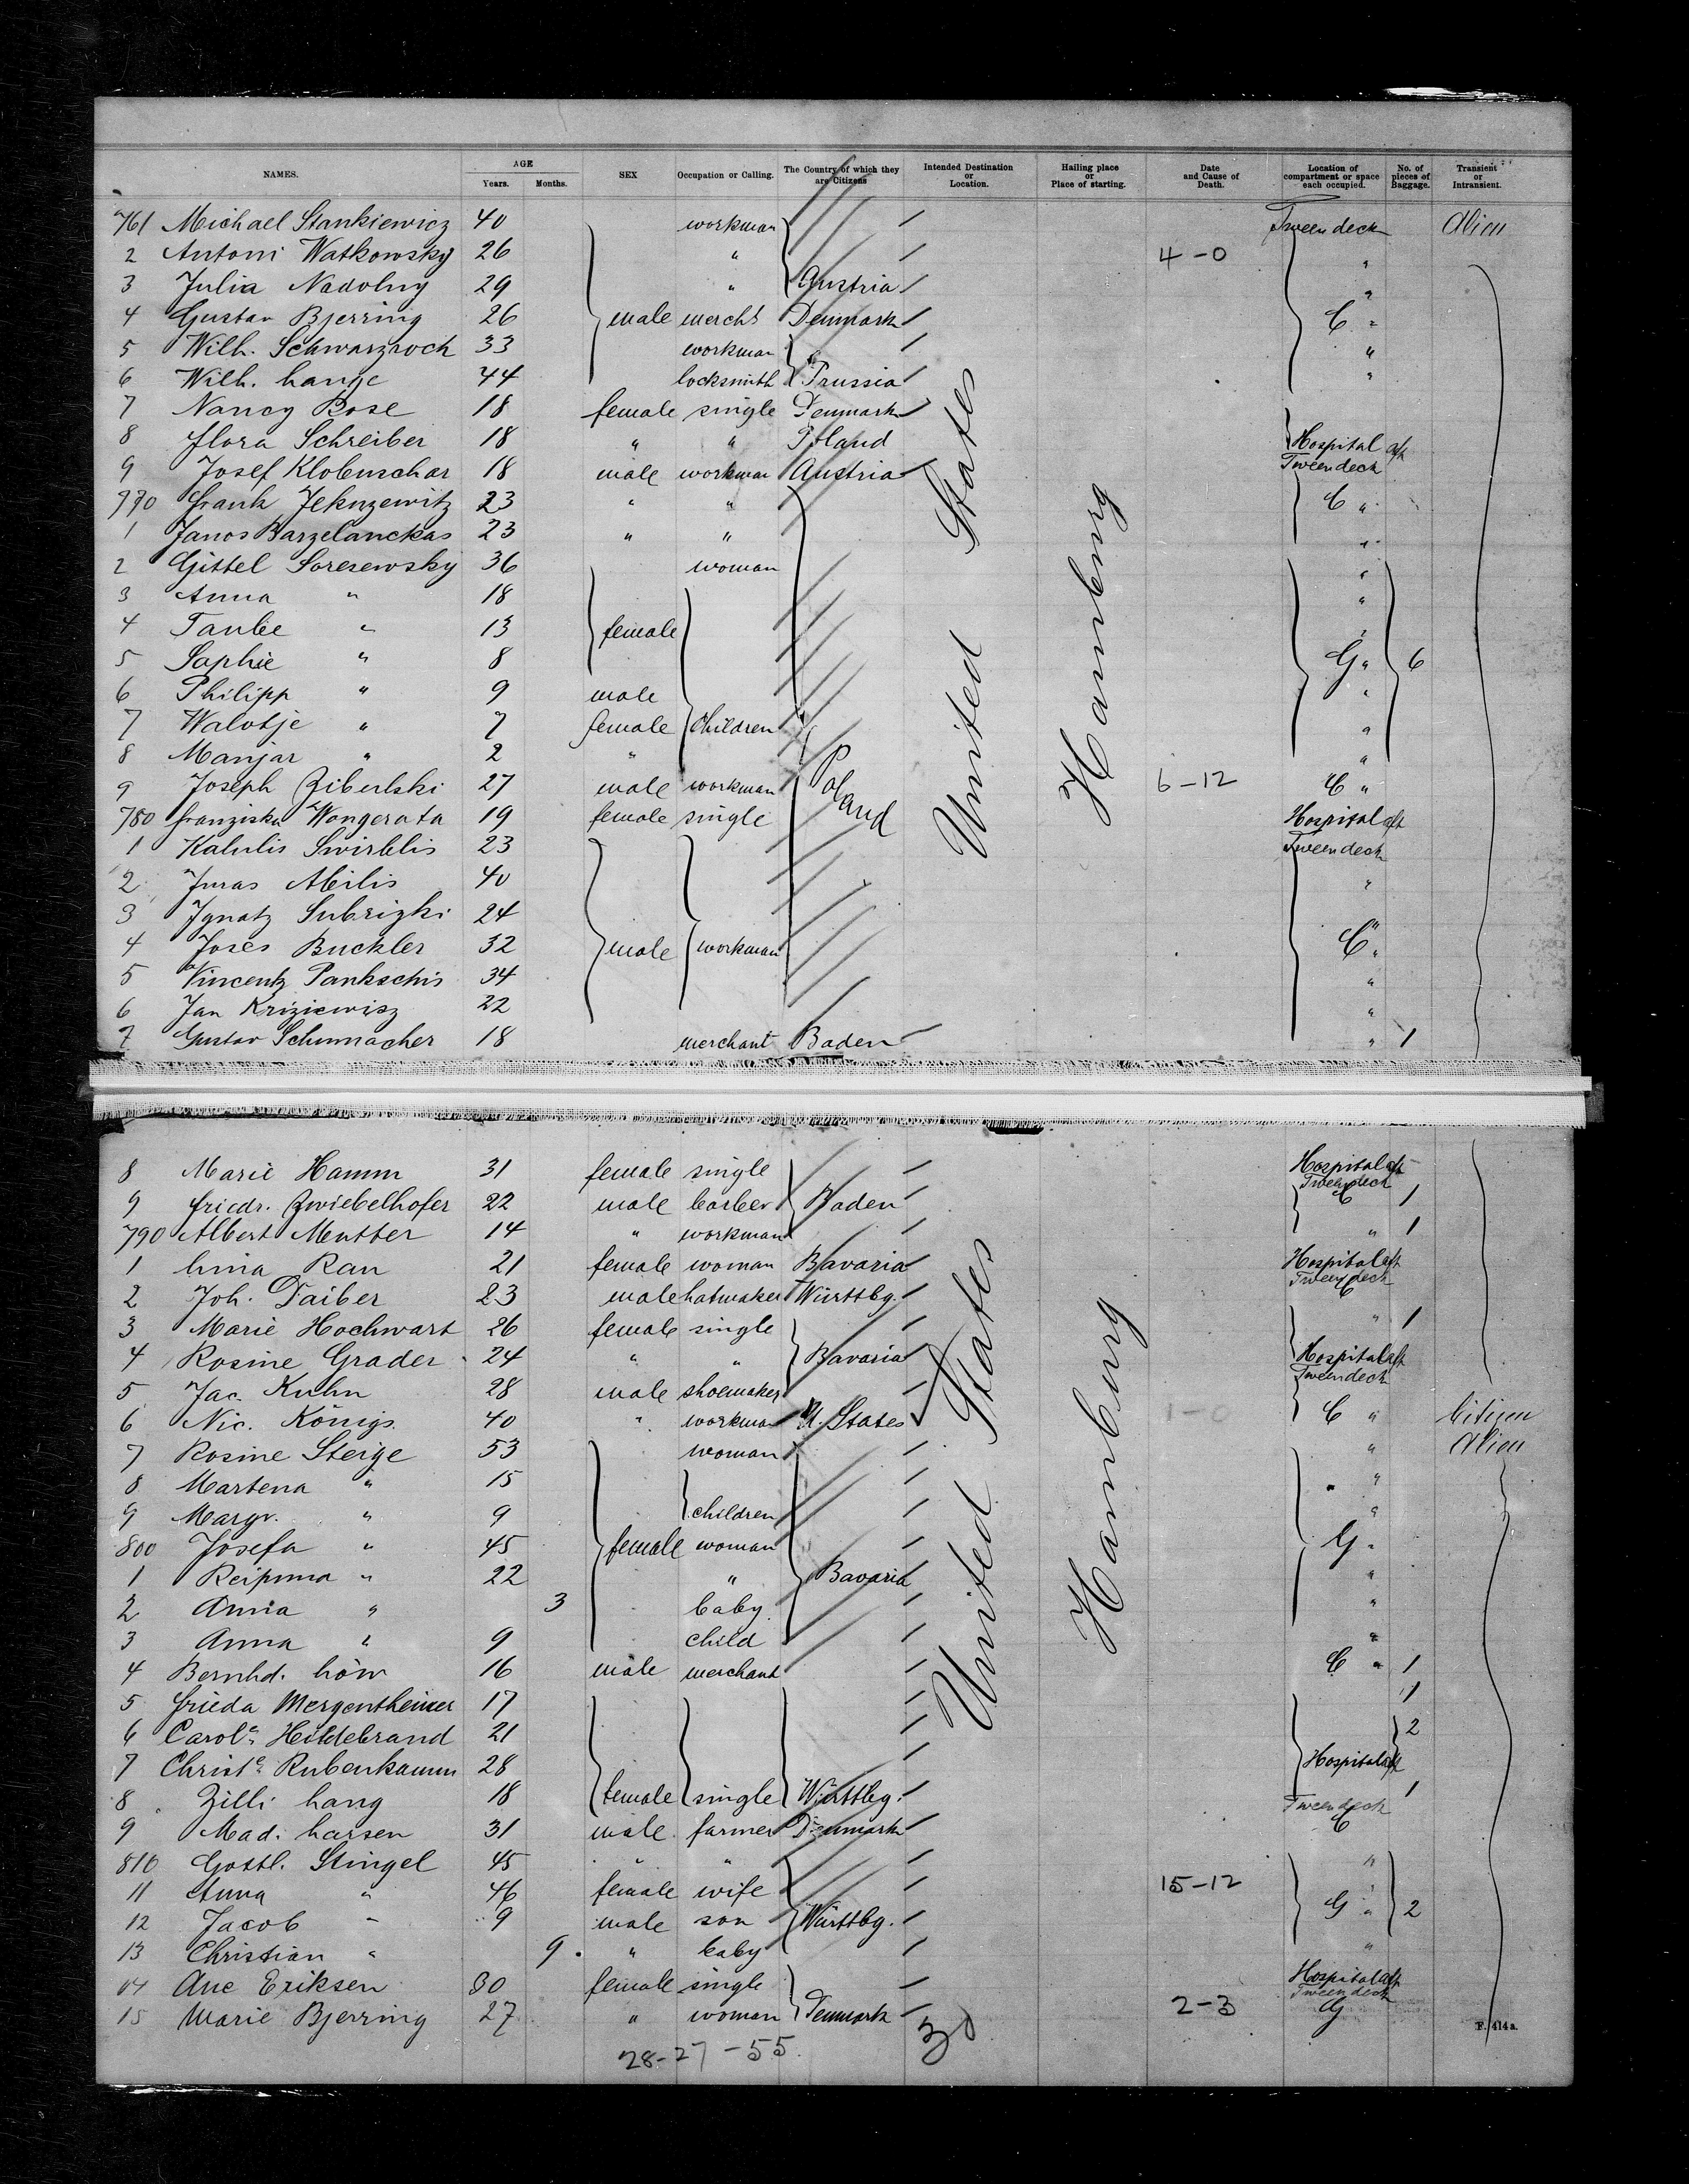 NAMES. AGE Years. Months. SEX Occupation or Calling. The Country of which they are Citizens Intended Destination or Location. Hailing place or Place of starting. Date and Cause of Death. Location of compartment or space each occupied. No. of pieces of Baggage. Transient or Intransient.
761 Michael Stankiewicz 40 workman Tweendeck Alien
2 Antoni Watkowsky 26 " 4-0 "
3 Julia Nadolny 29 " Austria "
4 Gustav Bjerring 26 male mercht Denmark C "
5 Wilh. Schwarzrock 33 workman " "
6 Wilh. Lange 44 locksmith Prussia "
7 Nancy Rose 18 female single Denmark
8 Flora Schreiber 18 " " Hospital aft
9 Josef Klobenschar 18 male workman Austria Tweendeck
770 Frank 23 " " C "
1 Janos Barzelanckas 23 " " "
2 Gittel Soresewsky 36 woman "
3 Anna " 18 "
4 Taube " 13 female "
5 Saphie " 8 G " 6
6 Philipp " 9 male "
7 Walotje " 7 female children "
8 Manjar " 2 " "
9 Joseph Zibulski 27 male workman Poland 6-12 C "
780 Franziska Wongerata 19 female single Hospital aft
1 Kalulis Swirblis 23 Tweendeck
2 Juras Abilis 40 "
3 Ignatz Subrizki 24 "
4 Joses Buckler 32 male workman C "
5 Vincentz Pankschis 34 "
6 Jan Kriziewisz 22 "
7 Gustav Schumacher 18 merchant Baden " 1
8 Marie Hamm 31 female single Hospital aft
9 Friedr. Zwiebelhofer 22 male barber Baden Tweendeck C 1
790 Albert Mutter 14 " workman " 1
1 Lina Rau 21 female woman Bavaria Hospital aft
2 Joh. Daiber 23 male hatmaker Württbg. Tweendeck C
3 Marie Hochwart 26 female single " 1
4 Rosine Grader 24 " " Bavaria Hospital aft
5 Jac. Kuhn 28 male shoemaker Tweendeck
6 Nic. Königs 40 " workman U. States 1-0 C " Citizen
7 Rosine Steige 53 woman " Alien
8 Martena " 15 "
9 Margr. " 9 children "
800 Josefa " 45 female woman G "
1 " 22 " Bavaria "
2 Anna " 3 baby "
3 Anna " 9 child "
4 Bernhd. Löw 16 male merchant C " 1
5 Frieda Mergentheimer 17 1
6 Carole. Hildebrand 21 2
7 Christe. Rubenkamm 28 Hospital aft
8 Zilli Lang 18 female single Württbg. 1
9 Mad. Larsen 31 male farmer Denmark Tweendeck C
810 Gottl. Stingel 45 " " "
11 Anna " 46 female wife 15-12 "
12 Jacob " 9 male son Württbg. G " 2
13 Christian " 9 " baby "
14 Ane Eriksen 30 female single Hospital aft
15 Marie Bjerring 27 " woman Denmark 2-3 Tweendeck G
United States
Hamburg
United States
Hamburg
28-27-55
30
F. 414a.